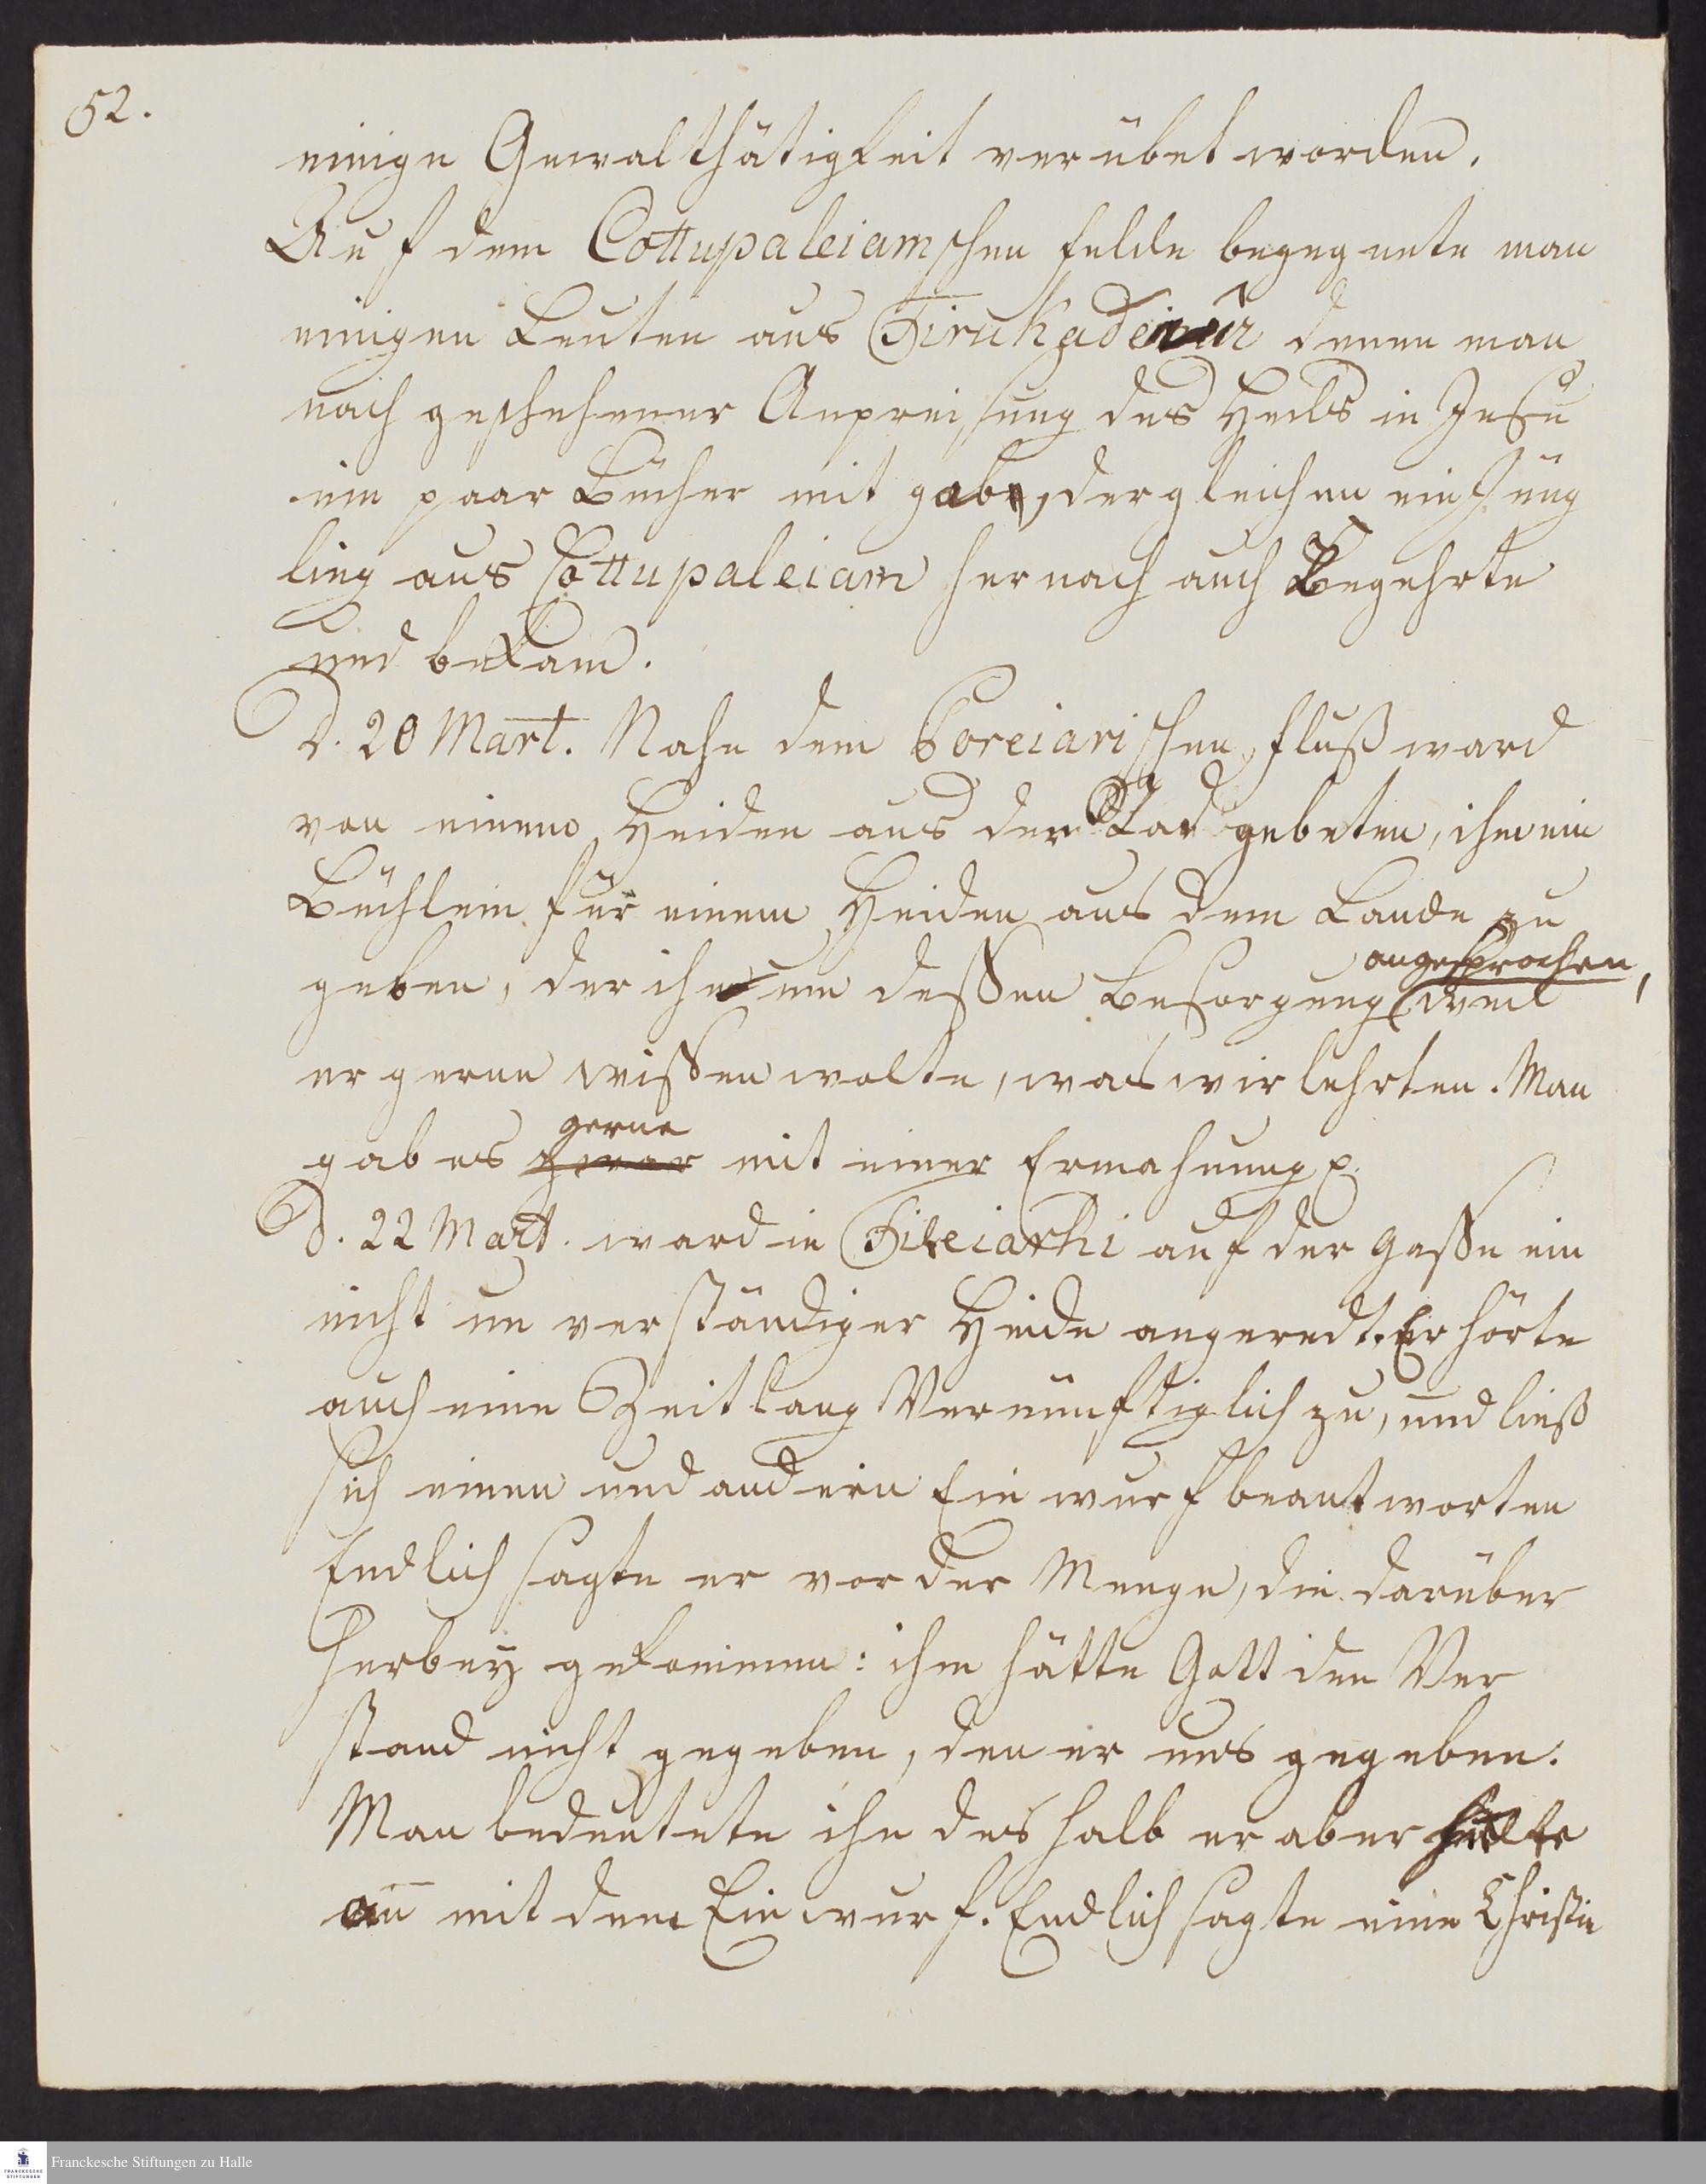 52.
einige Gewalthätigkeit verübet worden.
Auf dem Cottupaleiamschen Felde begegnete man
einigen Leuten aus Tirukadeiur denen man
nach geschehener Anpreisung des Heils in Jesu
ein paar Bücher mit gab, dergleichen ein Jüng
ling aus Cottupaleiam hernach auch Begehrte
und bekam.
D. 20 Mart. Nahe dem Poreiarischen Fluß ward
von einem Heiden aus der Stad gebeten, ihm ein
Büchlein für einem Heiden aus dem Lande zu
angesprochen,
geben, der ihn um deßen Besorgung weil
er gerne wißen wolte, was wir lehrten. Man
gerne
gab es zwar mit einer Ermahnung p.
D. 22 Mart. ward in Tileiarhi auf der Gaße ein
nicht un verständiger Heide angeredt. Er hörte
auch eine Zeitlang Vernünftiglich zu, und ließ
sich einen und andern Einwurf beantworten
Endlich sagte er vor der Menge, die darüber
herbey gekommen: ihm hätte Gott den Ver
stand nicht gegeben, den er uns gegeben.
Man bedeutete ihn deshalb er aber hielte
an mit dem Einwurf. Endlich sagte eine Christin
Franckesche Stiftungen zu Halle